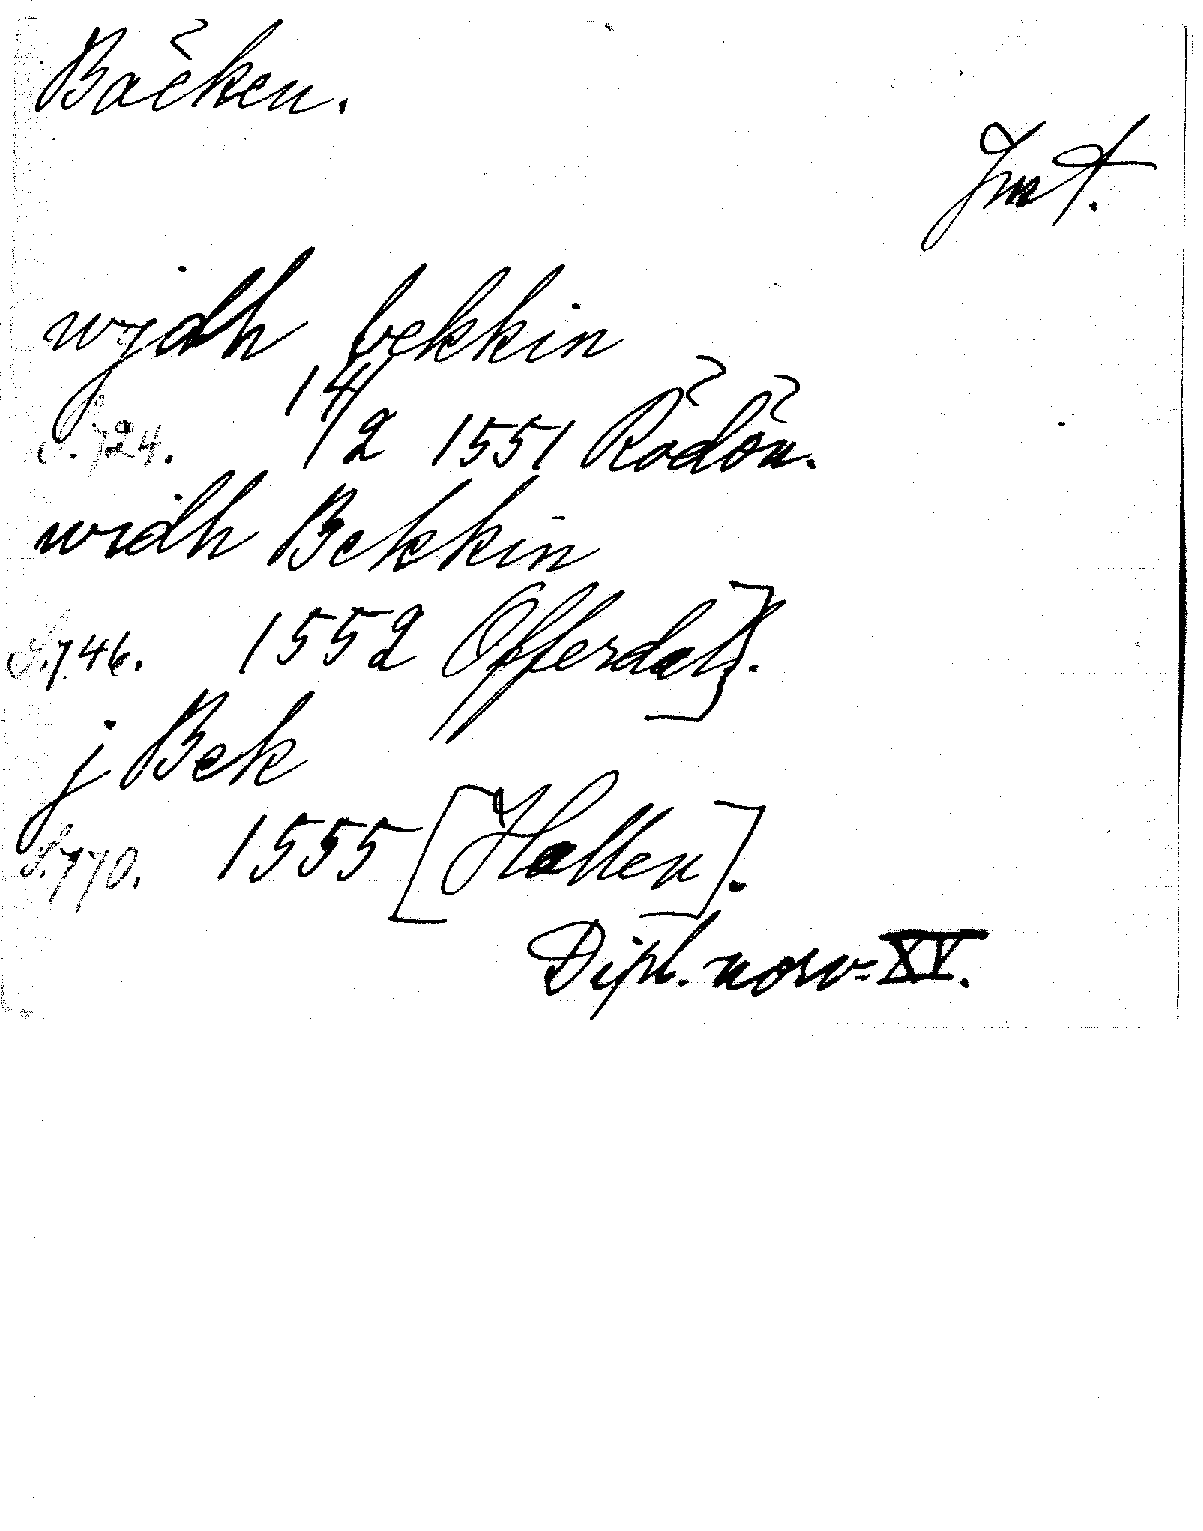 Bäcken.
Jmt.
wjdh bekkin
S. 724. 14/2 1551 Rödön.
widh Bekkin
S. 746. 1552 Offerdal].
j Bek
S. 770. 1555 [Hallen].
Dipl. norv. XV.